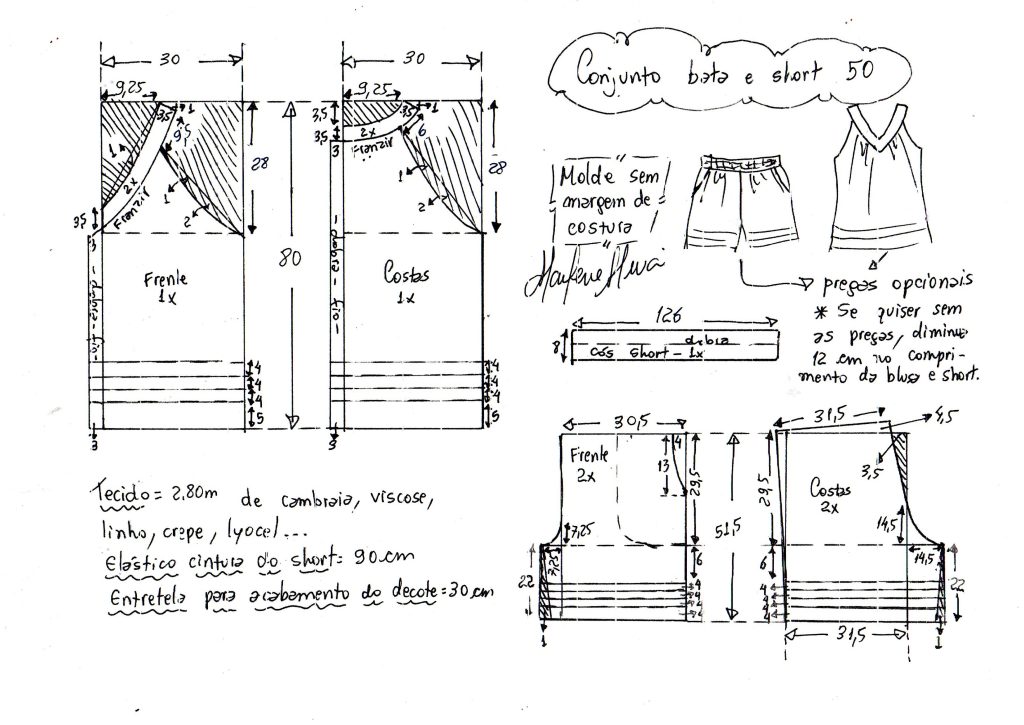 Conjunto bata e short 50
30
9,25
3,5
1
9,5
1
2x
Franzir
1
2
28
3,5
3
dobra - fio
Frente
1x
4
4
4
5
3
80
30
9,25
3,5
1
3,5
6
2x
Franzir
3
1
2
28
dobra - fio
Costas
1x
4
4
4
5
3
Molde sem
margem de
costura
pregas opcionais
* Se quiser sem
as pregas, diminua
12 cm no compri-
mento da blusa e short.
126
8
dobra
cós short - 1x
30,5
Frente
2x
4
13
29,5
7,25
3,25
22
6
4
4
4
4
1
51,5
31,5
4,5
3,5
29,5
Costas
2x
14,5
14,5
6
4
4
4
4
22
31,5
1
Tecido = 2,80m de cambraia, viscose,
linho, crepe, lyocel...
Elástico cintura do short = 90 cm
Entretela para acabamento do decote = 30 cm